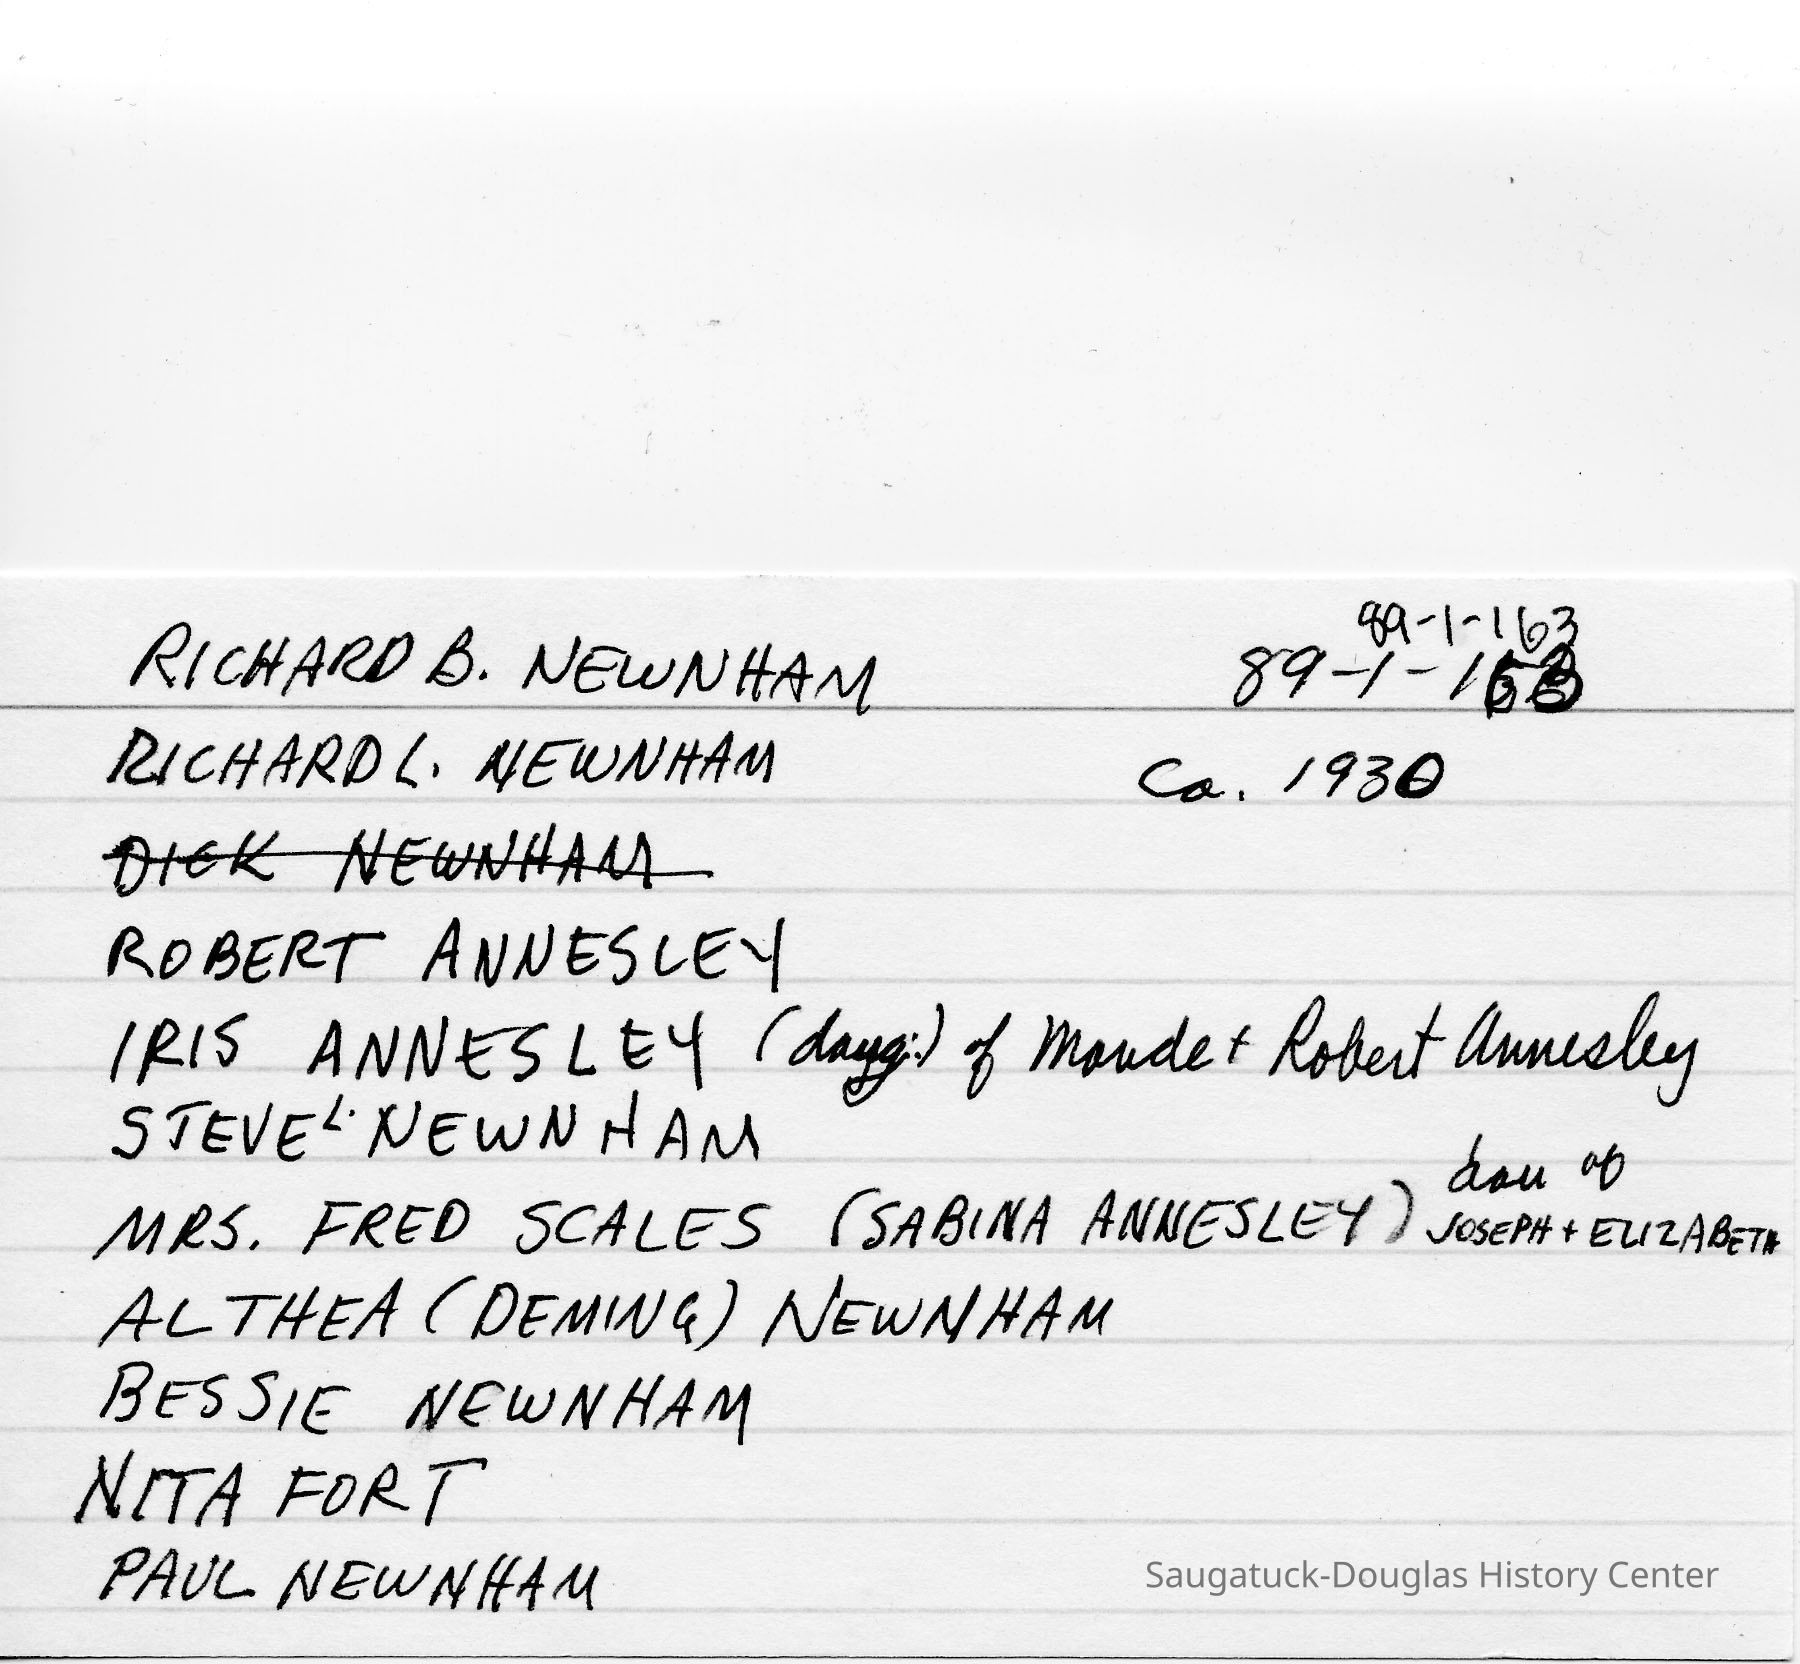 89-1-163
RICHARD B. NEWNHAM 89-1-163
RICHARD L. NEWNHAM Ca. 1930
DICK NEWNHAM
ROBERT ANNESLEY
IRIS ANNESLEY (daug:) of Maude + Robert Annesley
STEVE L. NEWNHAM
dau of
MRS. FRED SCALES (SABINA ANNESLEY) JOSEPH + ELIZABETH
ALTHEA (DEMING) NEWNHAM
BESSIE NEWNHAM
NITA FORT
PAUL NEWNHAM
Saugatuck-Douglas History Center